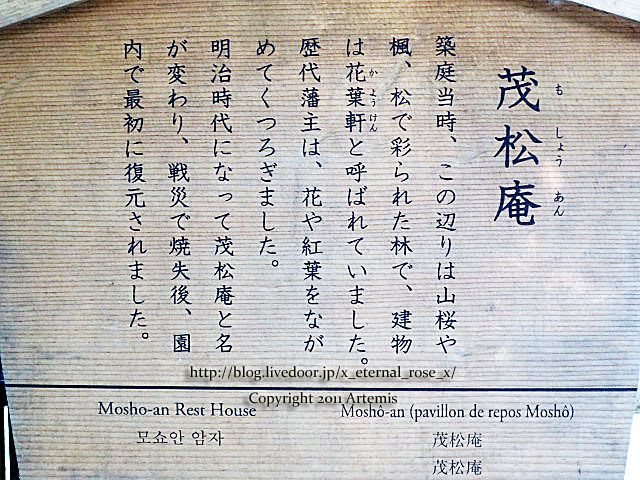 茂松庵
も しょう あん
築庭当時、この辺りは山桜や
楓、松で彩られた林で、建物
は花葉軒と呼ばれていました。
か ようけん
歴代藩主は、花や紅葉をなが
めてくつろぎました。
明治時代になって茂松庵と名
が変わり、戦災で焼失後、園
内で最初に復元されました。
http://blog.livedoor.jp/x_eternal_rose_x/
Copyright 2011 Artemis
Mosho-an Rest House
모쇼안 암자
Moshô-an (pavillon de repos Moshô)
茂松庵
茂松庵